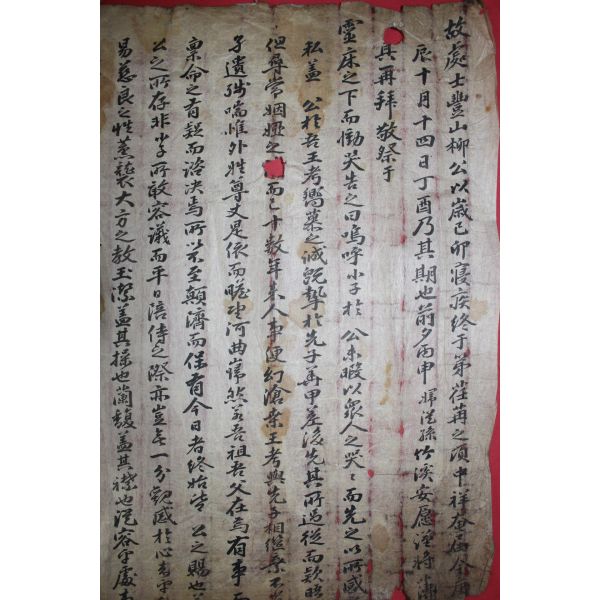 故處士豐山柳公以歲己卯寢疾終于第荏苒之頃中祥奄屆今月
辰十月十四日丁酉乃其期也前夕丙申 姊從孫竹溪安愿謹將
具再拜敬祭于
靈床之下而慟哭告之曰嗚呼小子於 公未暇以衆人之哭哭而先之以所感
私盖 公於吾王考嚮慕之誠旣摯於先子再甲差後先其所過從而款
但尋常姻婭之 而已十數年來人事便幻滄桑王考與先子相繼棄
孑遺殘喘惟外姓尊丈是依而瞻 河曲巋然若吾祖吾父在焉有事而
稟命之有疑而諮決焉所以不至顚濟而保有今日者終始皆 公之賜也
公之所存非小子所敢容議而平日陪侍之際亦豈無一分觀感於心者乎
易慈良之性薰襲大方之敎玉潔盖其操也蘭馥盖其襟也從容乎處